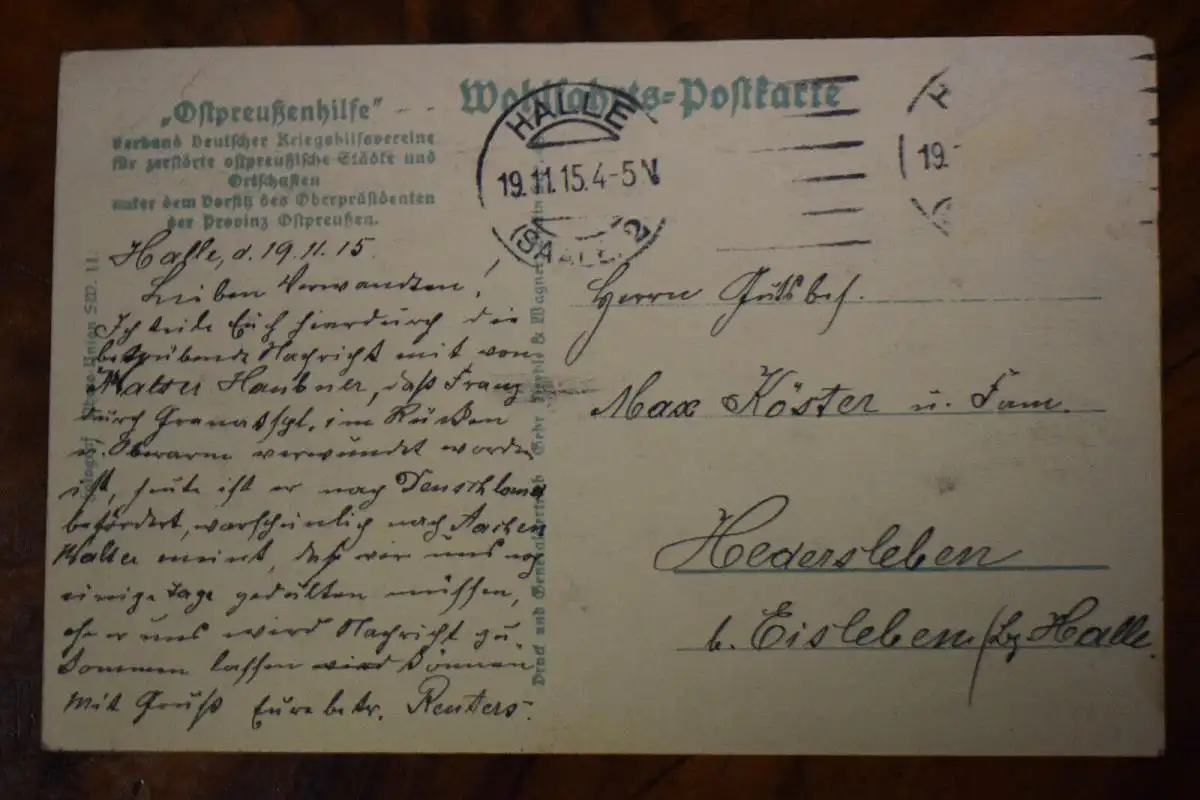 Wohlfahrts-Postkarte
„Ostpreußenhilfe“
Verband Deutscher Kriegshilfsvereine
für zerstörte ostpreußische Städte und
Ortschaften
unter dem Vorsitz des Oberpräsidenten
der Provinz Ostpreußen.
HALLE
19.11.15.4-5N
(SAALE) 2
H
19.
Halle, d. 19.11.15.
Lieben Verwandten!
Ich teile Euch hierdurch die
betrübende Nachricht mit von
Walter Haubner, daß Franz
durch Granatspl. im Rücken
u. Oberarm verwundet worden
ist, heute ist er nach Deutschland
befördert, warscheinlich nach Aachen
Walter meint, daß wir uns noch
einige Tage gedulten müssen,
ehe er uns wird Nachricht zu
kommen lassen wird können
Mit Gruß Eure betr. Reuters.
Herrn Gutsbes.
Max Köster u. Fam.
Hedersleben
b. Eisleben/Bz Halle.
Union SW. 11.
Druck und Generalvertrieb Gebr. & Wagner